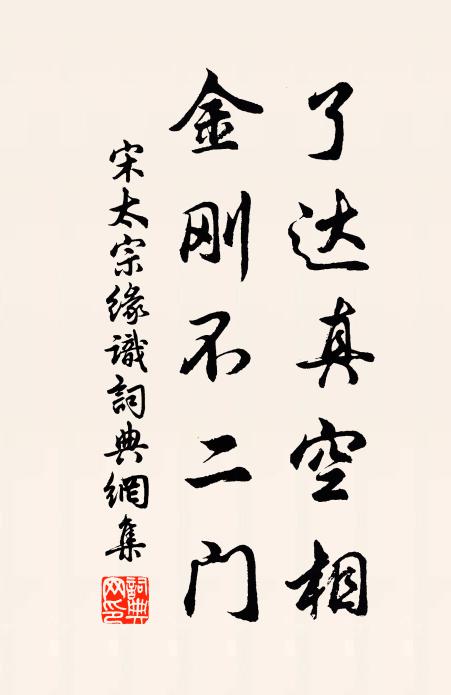 了达真空相
金刚不二门
宋太宗缘識詞典網集
詞典网印